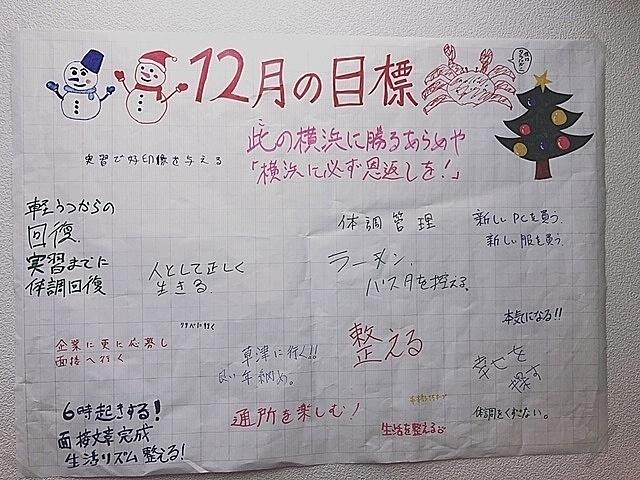 12月の目標
此の横浜に勝るあらめや
「横浜に必ず恩返しを!」
実習で好印像を与える
軽うつからの
回復.
実習までに
体調回復
人として正しく
生きる.
体調管理
ラーメン.
パスタを控える.
新しいPCを買う.
新しい服を買う.
本気になる!!
企業に更に応募し
面接へ行く
草津に行く!!
良い年納め。
整える
幸せを
探す
6時起きする!
面接文章完成
生活リズム整える!
通所を楽しむ!
生活を整える
体調をくずさない。